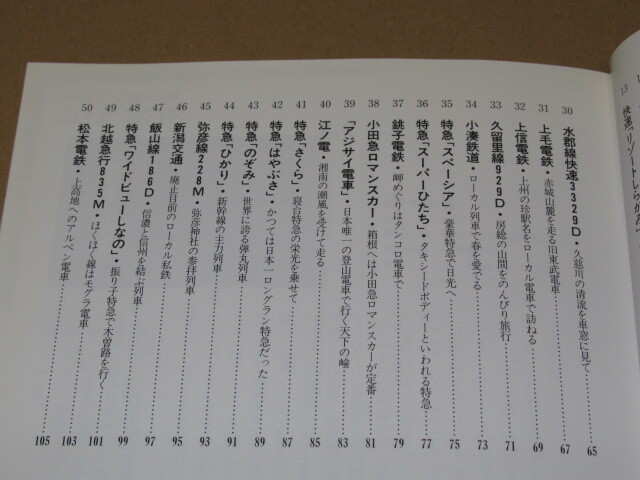 30 水郡線快速3329D・久慈川の清流を車窓に見て 65
31 上毛電鉄・赤城山麓を走る旧東武電車 67
32 上信電鉄・上州の珍駅名をローカル電車で訪ねる 69
33 久留里線929D・房総の山間をのんびり旅行 71
34 小湊鉄道・ローカル列車で春を愛でる 73
35 特急「スペーシア」・豪華特急で日光へ 75
36 特急「スーパーひたち」・タキシードボディーといわれる特急 77
37 銚子電鉄・岬めぐりはタンコロ電車で 79
38 小田急ロマンスカー・箱根へは小田急ロマンスカーが定番 81
39 「アジサイ電車」・日本唯一の登山電車で行く天下の嶮 83
40 江ノ電・湘南の潮風を受けて走る 85
41 特急「さくら」・寝台特急の栄光を乗せて 87
42 特急「はやぶさ」・かつては日本一ロングラン特急だった 89
43 特急「のぞみ」・世界に誇る弾丸列車 91
44 特急「ひかり」・新幹線の主力列車 93
45 弥彦線228M・弥彦神社の参拝列車
46 新潟交通・廃止目前のローカル私鉄 95
47 飯山線186D・信濃と信州を結ぶ列車 97
48 特急「ワイドビューしなの」・振り子特急で木曽路を行く 99
49 北越急行835M・ほくほく線はモグラ電車 101
50 松本電鉄・上高地へのアルペン電車 103
105